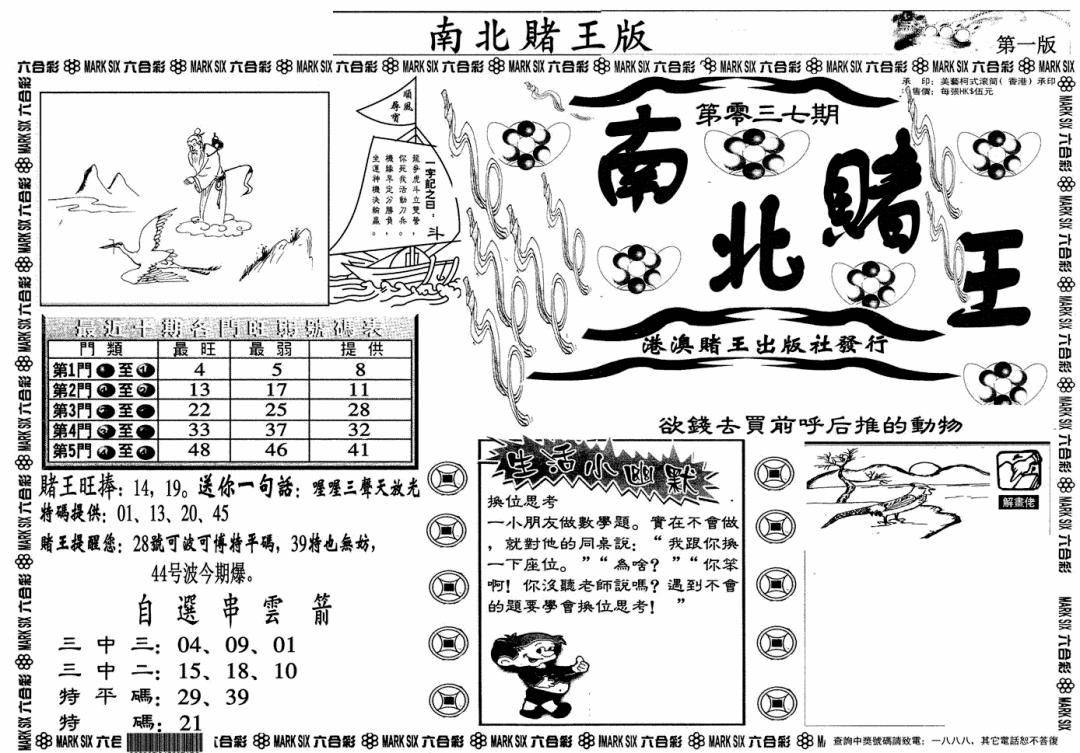 南北賭王版
第一版
六合彩 MARK SIX 六合彩 MARK SIX 六合彩 MARK SIX 六合彩 MARK SIX 六合彩 MARK SIX 六合彩 MARK SIX 六合彩 MARK SIX 六合彩 MARK SIX 六合彩 MARK SIX 六合彩 MARK SIX
承 印：美藝柯式滾筒（香港）承印
售價：每張HK$伍元
順風
尋寶
一字記之曰：斗
龍爭虎斗立雙營，
你死我活動刀兵。
機緣早定分勝負，
坐運神機決輸贏。
第零三七期
南北賭王
港澳賭王出版社發行
最近十期各門旺弱號碼表
門類 最旺 最弱 提供
第1門 至 4 5 8
第2門 至 13 17 11
第3門 至 22 25 28
第4門 至 33 37 32
第5門 至 48 46 41
賭王旺捧：14，19。送你一句話：喔喔三聲天放光
特碼提供：01、13、20、45
賭王提醒您：28號可波可博特平碼，39特也無妨，
44号波今期爆。
自選串雲箭
三中三：04、09、01
三中二：15、18、10
特平碼：29、39
特碼：21
欲錢去買前呼后推的動物
生活小幽默
換位思考
一小朋友做數學題。實在不會做
，就對他的同桌說：“我跟你換
一下座位。”“為啥？”“你笨
啊！你沒聽老師說嗎？遇到不會
的題要學會換位思考！”
解畫佬
MARK SIX 六合彩 MARK SIX 六合彩 MARK SIX 六合彩 MARK SIX 六合彩 MARK SIX 六合彩 MARK SIX 六合彩
查詢中獎號碼請致電：一八八八，其它電話恕不答復